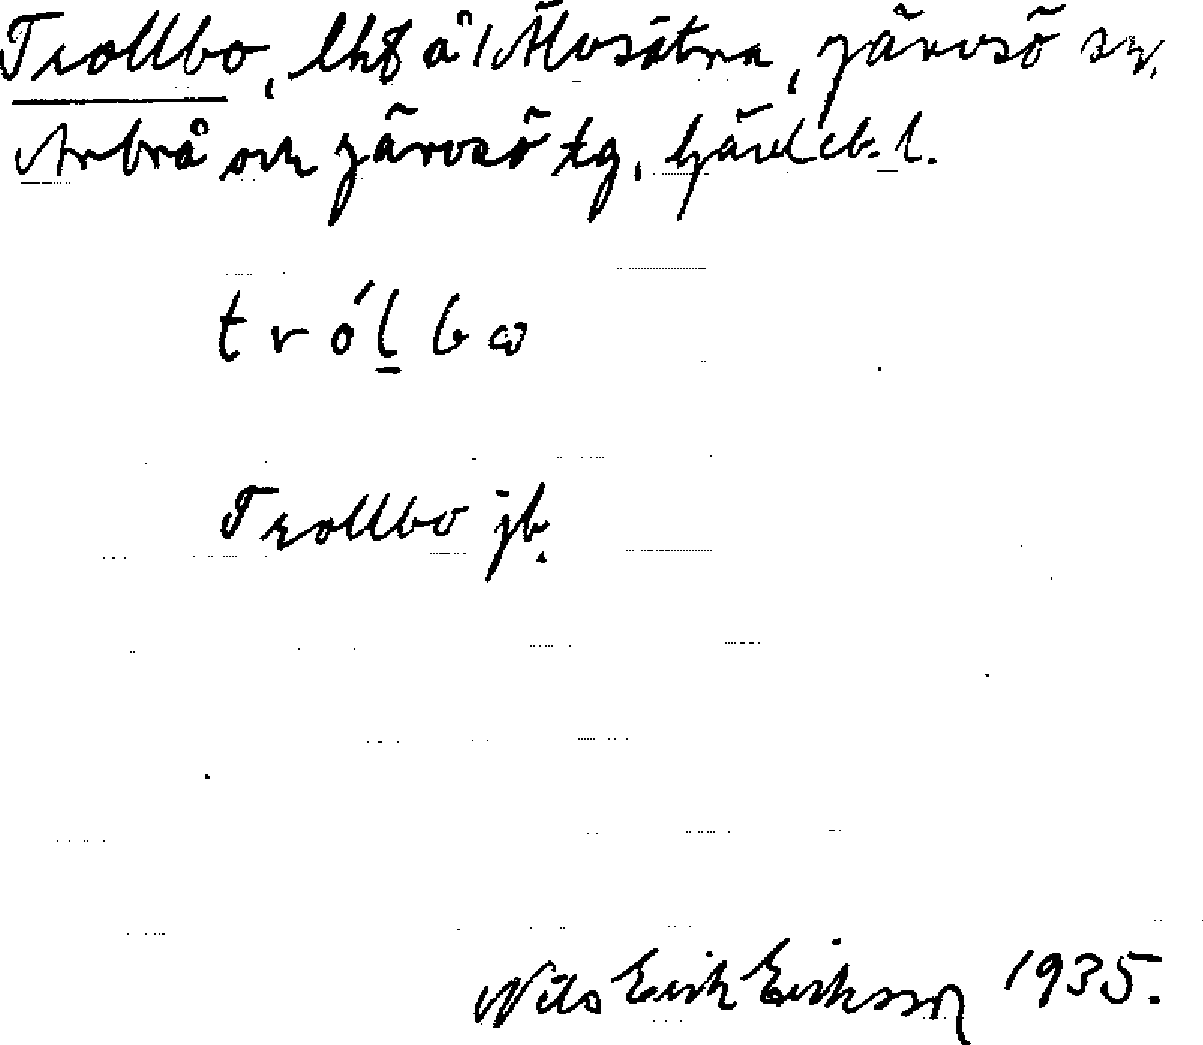 Trollbo, lht å 1 Älvsätra, Järvsö sn.
Arbrå och Järvsö tg, Gävleb. l.
trólbω
Trollbo jb.
Nils Erik Eriksson 1935.